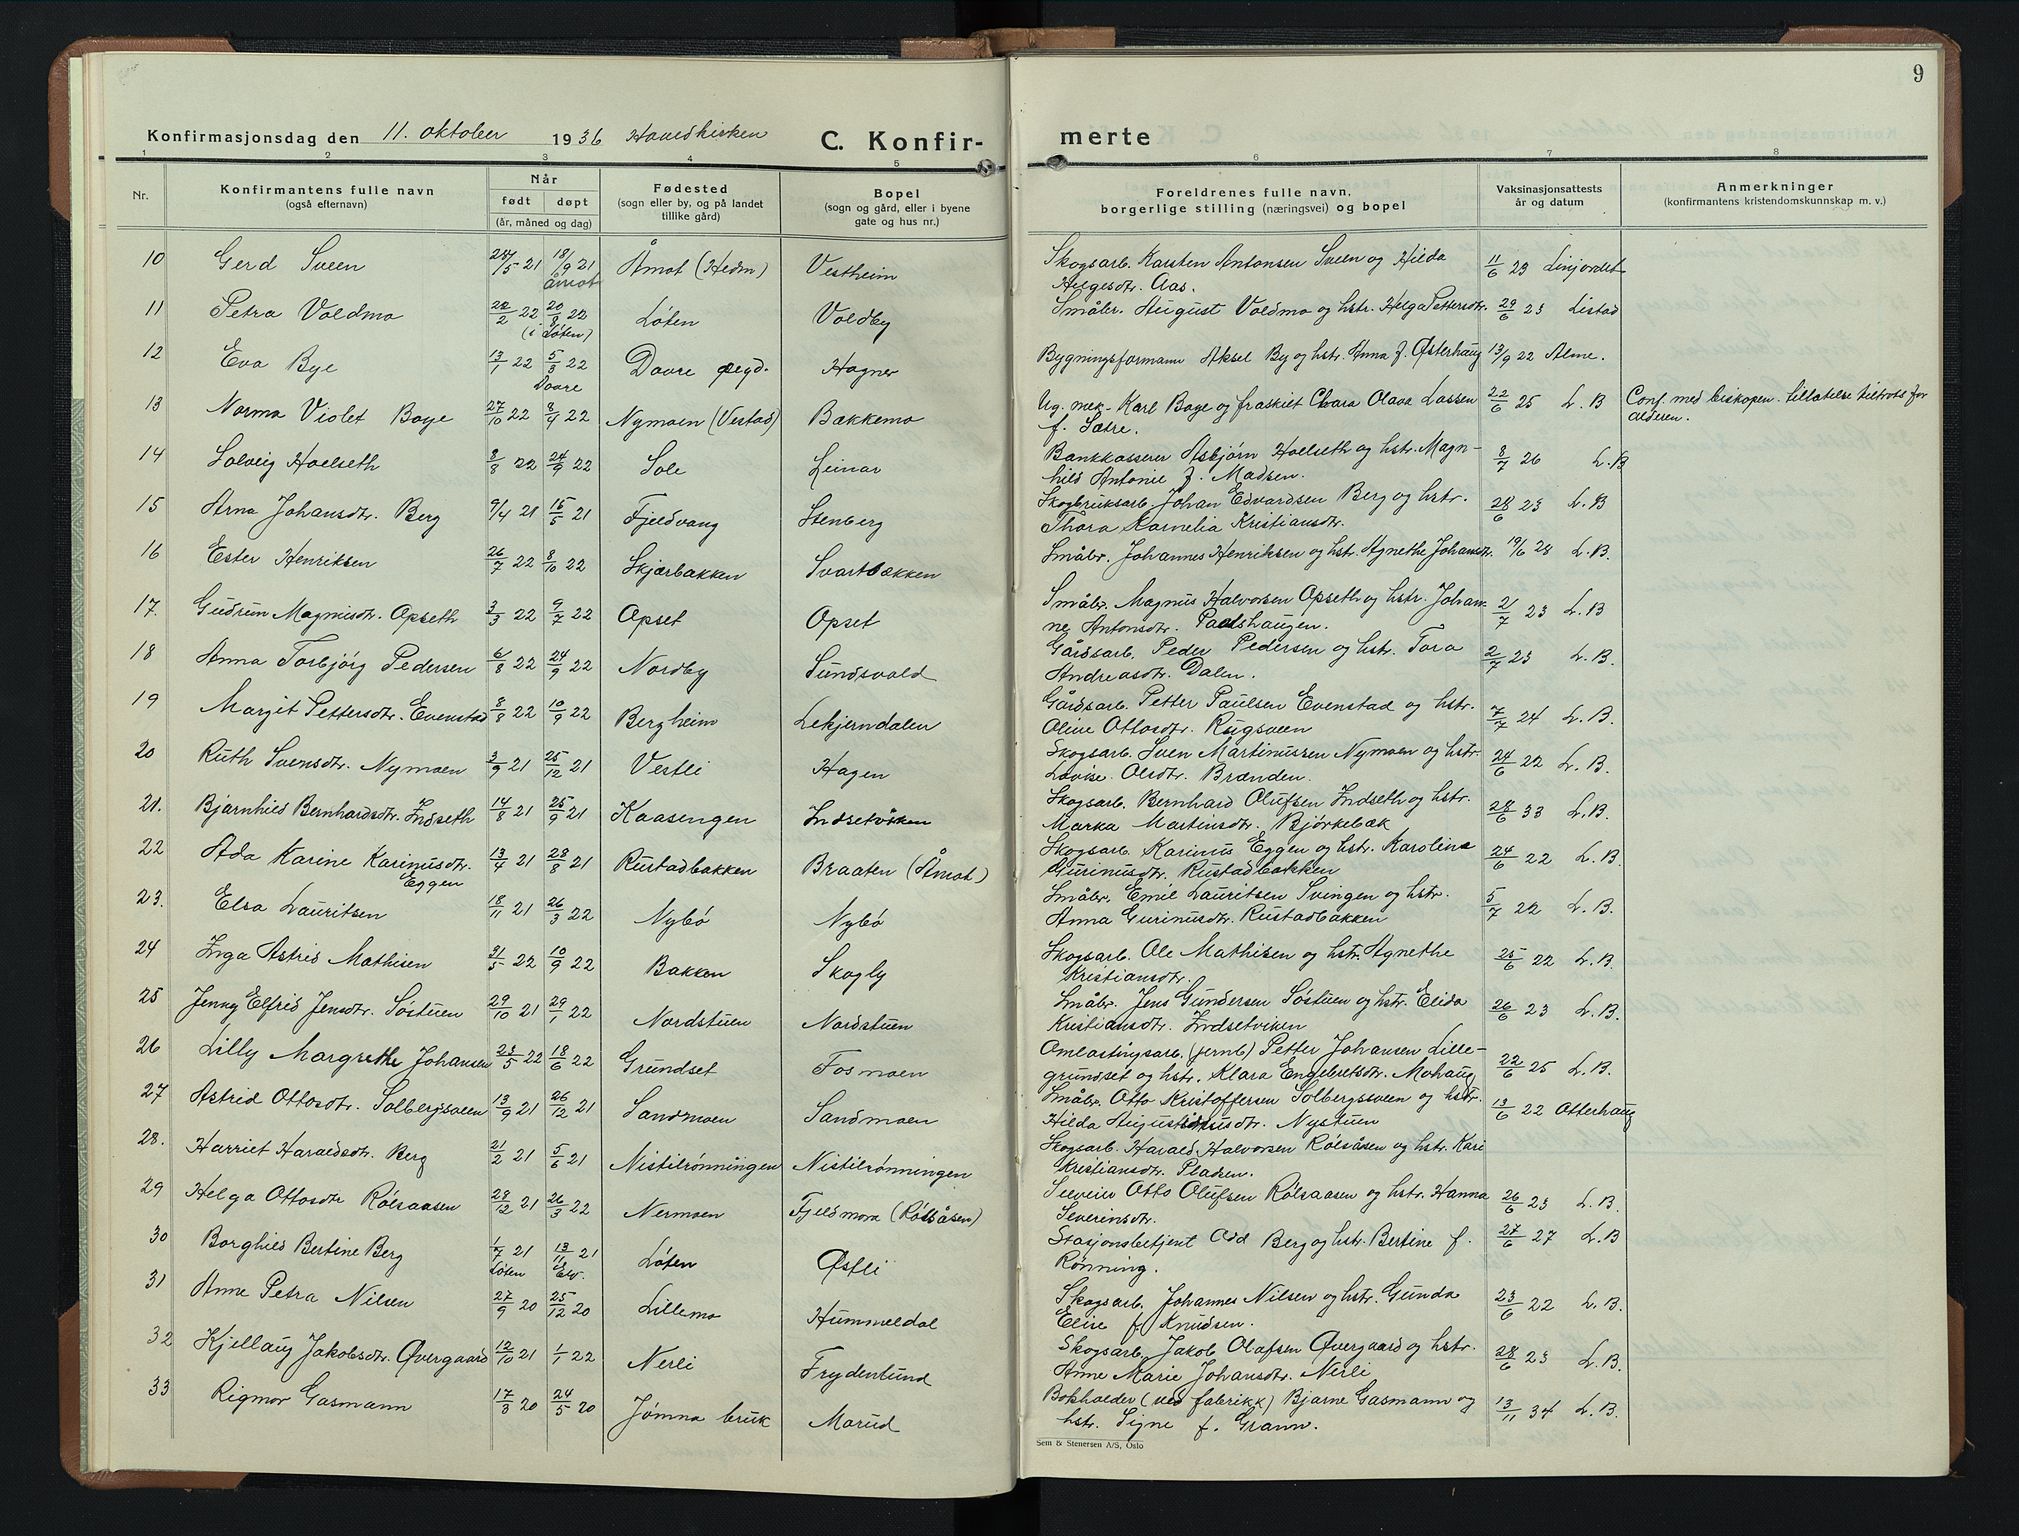 9
Konfirmasjonsdag den 11. oktober 1936 Hovedkirken C. Konfir-merte
1 2 3 4 5 6 7 8
Nr.
Konfirmantens fulle navn
(også efternavn)
Når
født døpt
(år, måned og dag)
Fødested
(sogn eller by, og på landet
tillike gård)
Bopel
(sogn og gård, eller i byene
gate og hus nr.)
Foreldrenes fulle navn,
borgerlige stilling (næringsvei) og bopel
Vaksinasjonsattests
år og datum
Anmerkninger
(konfirmantens kristendomskunnskap m. v.)
10 Gerd Sveen 24/5 21 18/9 21 Åmot Åmot (Hedm) Vestheim Skogsarb. Karsten Antonsen Sveen og Hilda
Helgesdtr. Aas. 11/6 23 Linjordet
11 Petra Voldmo 22/2 22 20/8 22 (i Løten) Løten Voldby Småbr. August Voldmo og hstr. Helga Pettersdtr. 29/6 23 Listad
12 Eva Bye 13/1 22 5/3 22 Dovre Dovre pregd. Hagner Bygningsformann Aksel By og hstr. Anna f. Østerhaug 13/9 22 Alme.
13 Norma Violet Boye 27/10 22 8/4 22 Nymoen (Vestad) Bakkemo Ug. mek. Karl Boye og fraskilt Clara Olava Lassen
f. Sætre. 22/6 25 L. B Conf. med biskopen. tillatelse tiltrots for
alderen.
14 Solveig Hoelseth 8/8 22 24/9 22 Sole Leinar Bankkasserer Asbjørn Hoelseth og hstr. Magn-
hild Antonie f. Madsen. 8/7 26 L. B
15 Arna Johansdtr. Berg 9/4 21 15/5 21 Fjeldvang Stenberg Skogbruksarb. Johan Edvardsen Berg og hstr.
Thora Kornelia Kristiansdtr. 28/6 23 L. B
16 Ester Henriksen 26/7 22 8/10 22 Skjærbakken Svartbækken Småbr. Johannes Henriksen og hstr. Agnethe Johansdtr. 19/6 28 L. B.
17. Gudrun Magnusdtr. Opseth 3/3 22 9/7 22 Opset Opset Småbr. Magnus Halvorsen Opseth og hstr. Johan-
ne Antonsdtr. Paalshaugen. 2/7 23 L. B
18 Anna Torbjørg Pedersen 6/8 22 24/9 22 Nordby Sundsvold Gårdsarb. Peder Pedersen og hstr. Tora
Andreasdtr. Dalen. 2/7 23 L. B.
19 Margit Pettersdtr. Evenstad 8/8 22 10/9 22 Bergheim Lekjerndalen Gårdsarb. Petter Paulsen Evenstad og hstr.
Oline Ottosdtr. Rugsveen 7/7 24 L. B.
20 Ruth Svensdtr. Nymoen 3/9 21 25/12 21 Vestli Hagen Skogsarb. Sven Martinussen Nymoen og hstr.
Lovise Olsdtr. Brænden. 24/6 22 L. B.
21. Bjarnhild Bernhardsdtr. Indseth 14/8 21 25/9 21 Kaasengen Indsetviken Skogsarb. Bernhard Olufsen Indseth og hstr.
Marka Martinsdtr. Bjørkebæk 28/6 33 L. B.
22 Ada Karine Karinusdtr.
Eggen 13/4 21 28/8 21 Rustadbakken Braaten (Åmot) Skogsarb. Karinus Eggen og hstr. Karoline
Gurinusdtr. Rustadbakken 24/6 22 L. B.
23. Elsa Lauritsen 18/11 21 26/3 22 Nybø Nybø Småbr. Emil Lauritsen Svingen og hstr.
Anna Gurinusdtr. Rustadbakken 5/7 22 L. B.
24 Inga Astrid Mathisen 31/5 22 10/9 22 Bakken Skogly Skogsarb. Ole Mathisen og hstr. Agnethe
Kristiansdtr. 25/6 22 L. B.
25 Jenny Elfrid Jensdtr. Søstuen 29/10 21 29/1 22 Nordstuen Nordstuen Småbr. Jens Gundersen Søstuen og hstr. Elida
Kristiansdtr. Indsetviken 26/6 23 L. B.
26 Lilly Margrethe Johansen 23/5 22 18/6 22 Grundset Fosmoen Omlastingsarb. (jernb) Petter Johansen Lille-
grundset og hstr. Klara Engebretsdtr. Mohaug 22/6 25 L. B.
27 Astrid Ottosdtr. Solbergsveen 13/9 21 26/12 21 Sandmoen Sandmoen Småbr. Otto Kristoffersen Solbergsveen og hstr.
Hilda Augustinusdtr. Nystuen 13/6 22 Otterhaug
28. Harriet Haraldsdtr. Berg 21/2 21 5/6 21 Nistilrønningen Nistilrønningen Skogsarb. Harald Halvorsen Rølsåsen og hstr. Kari
Kristiansdtr. Pladsen.
29 Helga Ottosdtr Rølsaasen 29/12 21 26/3 22 Nermoen Fjeldmora (Rølsåsen) Selveier Otto Olufsen Rølsaasen og hstr. Hanna
Severinsdtr. 26/6 23 L. B.
30 Borghild Bertine Berg 1/7 21 Løten 13/11 21 Elv. Løten Østli Stasjonsbetjent Odd Berg og hstr. Bertine f.
Rønning. 27/6 27 L. B
31 Anne Petra Nilsen 27/9 20 25/12 20 Lillemo Hummeldal Skogsarb. Johannes Nilsen og hstr. Gunda
Elise f. Knudsen. 23/6 22 L. B.
32 Kjellaug Jakobsdtr. Øvergaard 12/10 21 1/1 22 Nerli Frydenlund Skogsarb. Jakob Olafsen Øvergaard og hstr.
Anne Marie Johansdtr. Nerli 28/6 23 L. B.
33 Rigmor Gasmann 17/3 20 24/5 20 Jømna bruk Morud Bokholder (ved fabrikk) Bjarne Gasmann og
hstr. Signe f. Grann. 13/11 34 L. B.
Sem & Stenersen A/S, Oslo